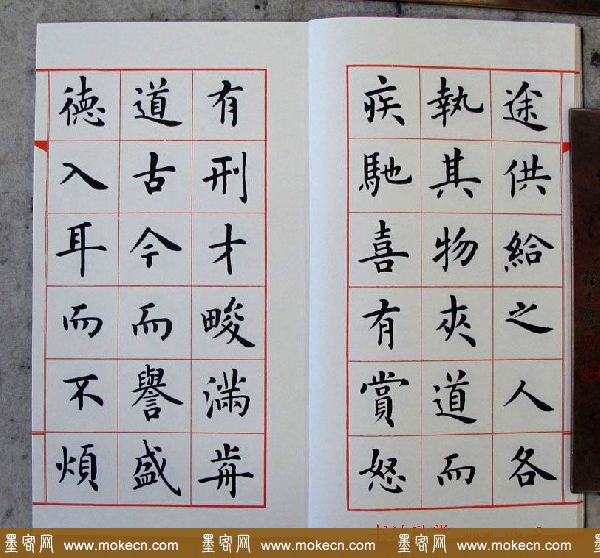 途供給之人各
執其物夾道而
疾馳喜有賞怒
有刑才畯滿歬
道古今而譽盛
德入耳而不煩
墨客网 www.mokecn.com 墨客网 www.mokecn.com 墨客网 www.mokecn.com